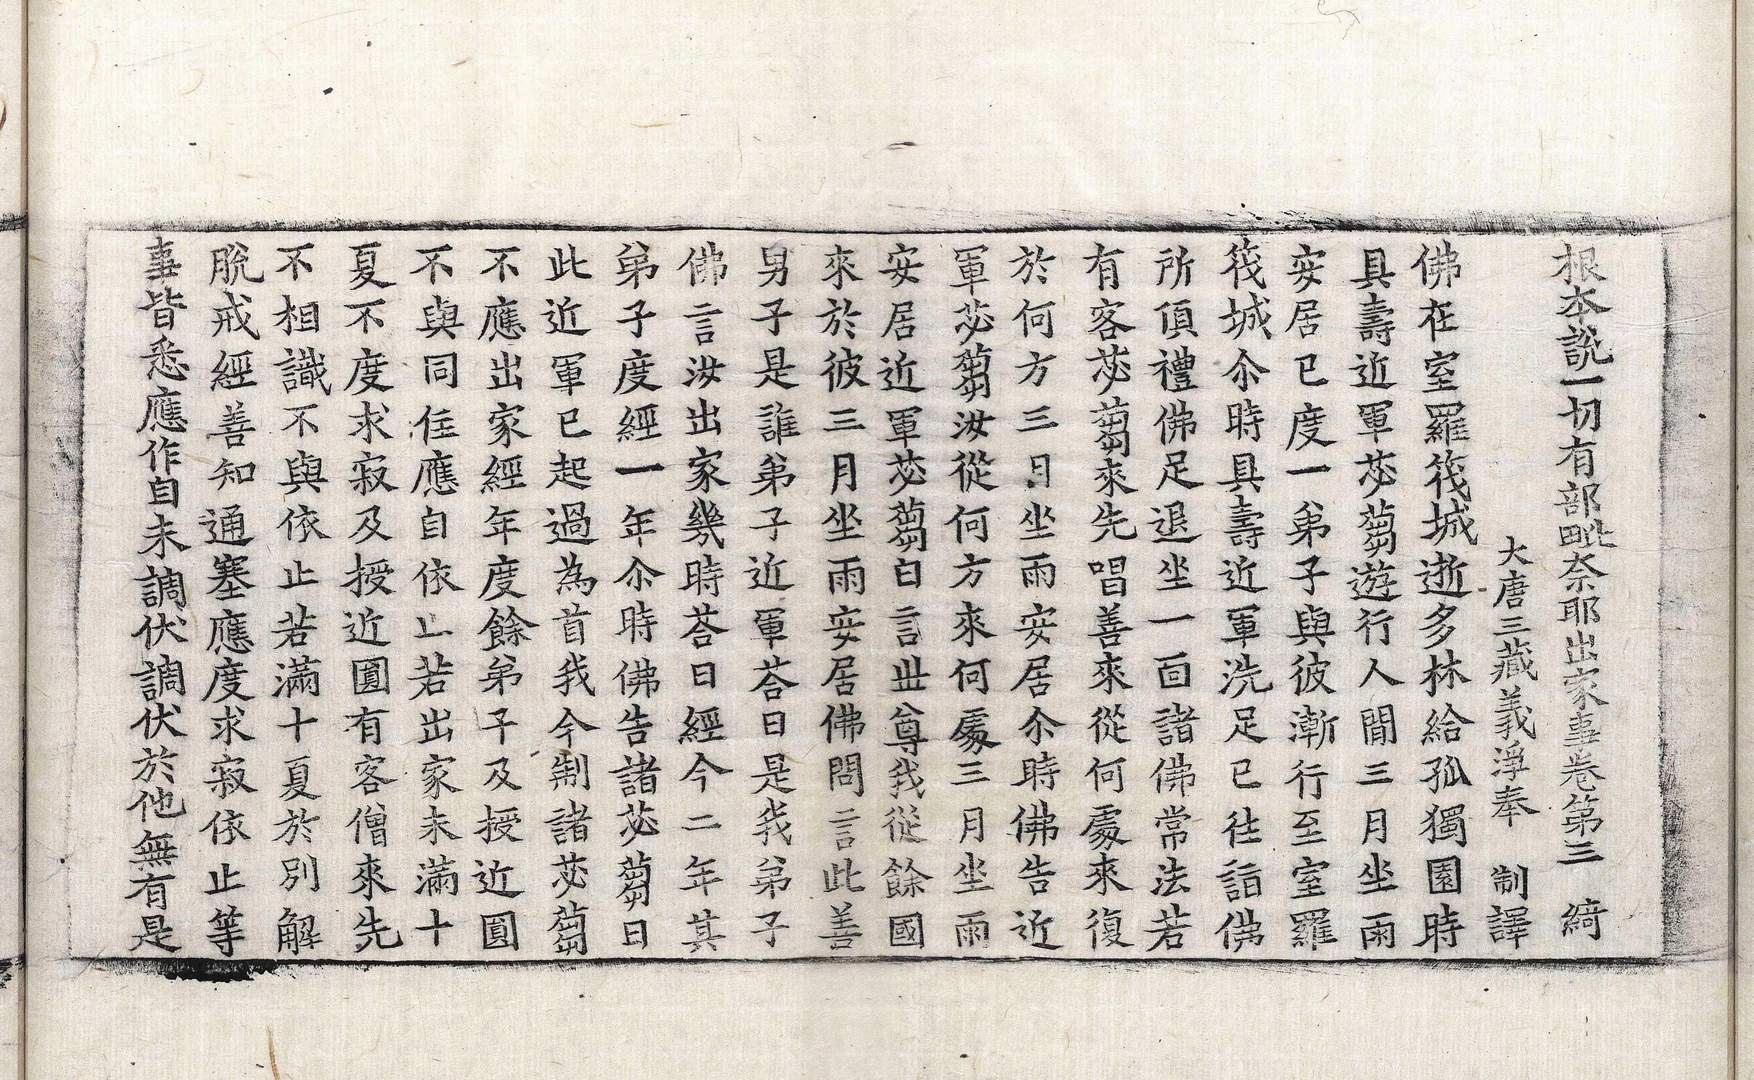 根本說一切有部毗奈耶出家事卷第三　綺
大唐三藏義淨奉　制譯
佛在室羅筏城逝多林給孤獨園時
具壽近軍苾蒭遊行人間三月坐雨
安居已度一弟子與彼漸行至室羅
筏城尒時具壽近軍洗足已往詣佛
所頂禮佛足退坐一面諸佛常法若
有客苾蒭來先唱善來從何處來復
於何方三月坐雨安居尒時佛告近
軍苾蒭汝從何方來何處三月坐雨
安居近軍苾蒭白言世尊我從餘國
來於彼三月坐雨安居佛問言此善
男子是誰弟子近軍荅曰是我弟子
佛言汝出家幾時荅曰經今二年其
弟子度經一年尒時佛告諸苾蒭曰
此近軍已起過為首我今制諸苾蒭
不應出家經年度餘弟子及授近圓
不與同住應自依止若出家未滿十
夏不度求寂及授近圓有客僧來先
不相識不與依止若滿十夏於別解
脫戒經善知通塞應度求寂依止等
事皆悉應作自未調伏調伏於他無有是